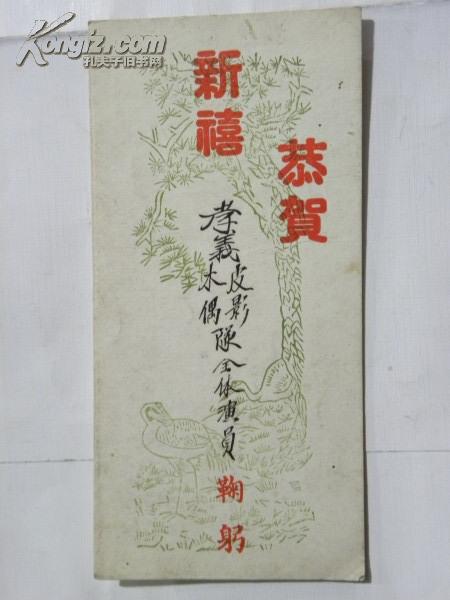 Kongfz.com
孔夫子旧书网
恭賀
新禧
孝義皮影木偶隊全体演員
鞠躬